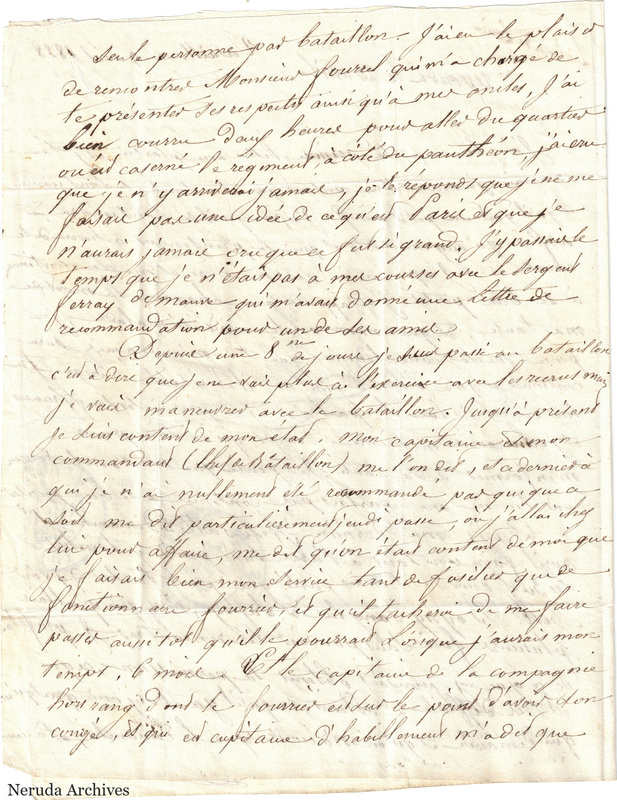 seule personne par bataillon. J'ai eu le plaisir
de rencontrer Monsieur fourrel qui m'a chargé de
te présenter ses respects ainsi qu'à mes amiles, J'ai
bien courru deux heures pour aller du quartier
où est caserné le régiment, à côté du panthéon, j'ai cru
que je n'y arriverai jamais, je te réponds que je ne me
faisait pas une idée de ce qu'est Paris et que je
n'aurais jamais cru que ce fut si grand. J'y passais le
temps que je n'étais pas à mes courses avec le sergent
ferray de maure qui m'avait donné une lettre de
recommandation pour un de ses amis
Depuis une 8ne de jours je suis passé au bataillon
c'est à dire que je ne vais plus à l'exercice avec les recrus mais
je vais maneuvrer avec le bataillon. Jusqu'à présent
je suis content de mon état, mon capitaine et mon
commandant (Chef de Bataillon) me l'on dit, et ce dernier à
qui je n'ai nullement été recommandé par qui que ce
soit me dit particulièrement jeudi passé, où j'allai chez
lui pour affaire, me dit qu'on était content de moi que
je faisais bien mon service tant de fusilier que de
fonctionnaire fourrier, et qu'il tacherai de me faire
passer aussitot qu'il le pourrait lorsque j'aurais mon
temps, 6 mois. Et le capitaine de la compagnie
hors rang dont le fourrier est sur le point d'avoir son
congé, et qui est capitaine d'habillement m'a dit que
Neruda Archives